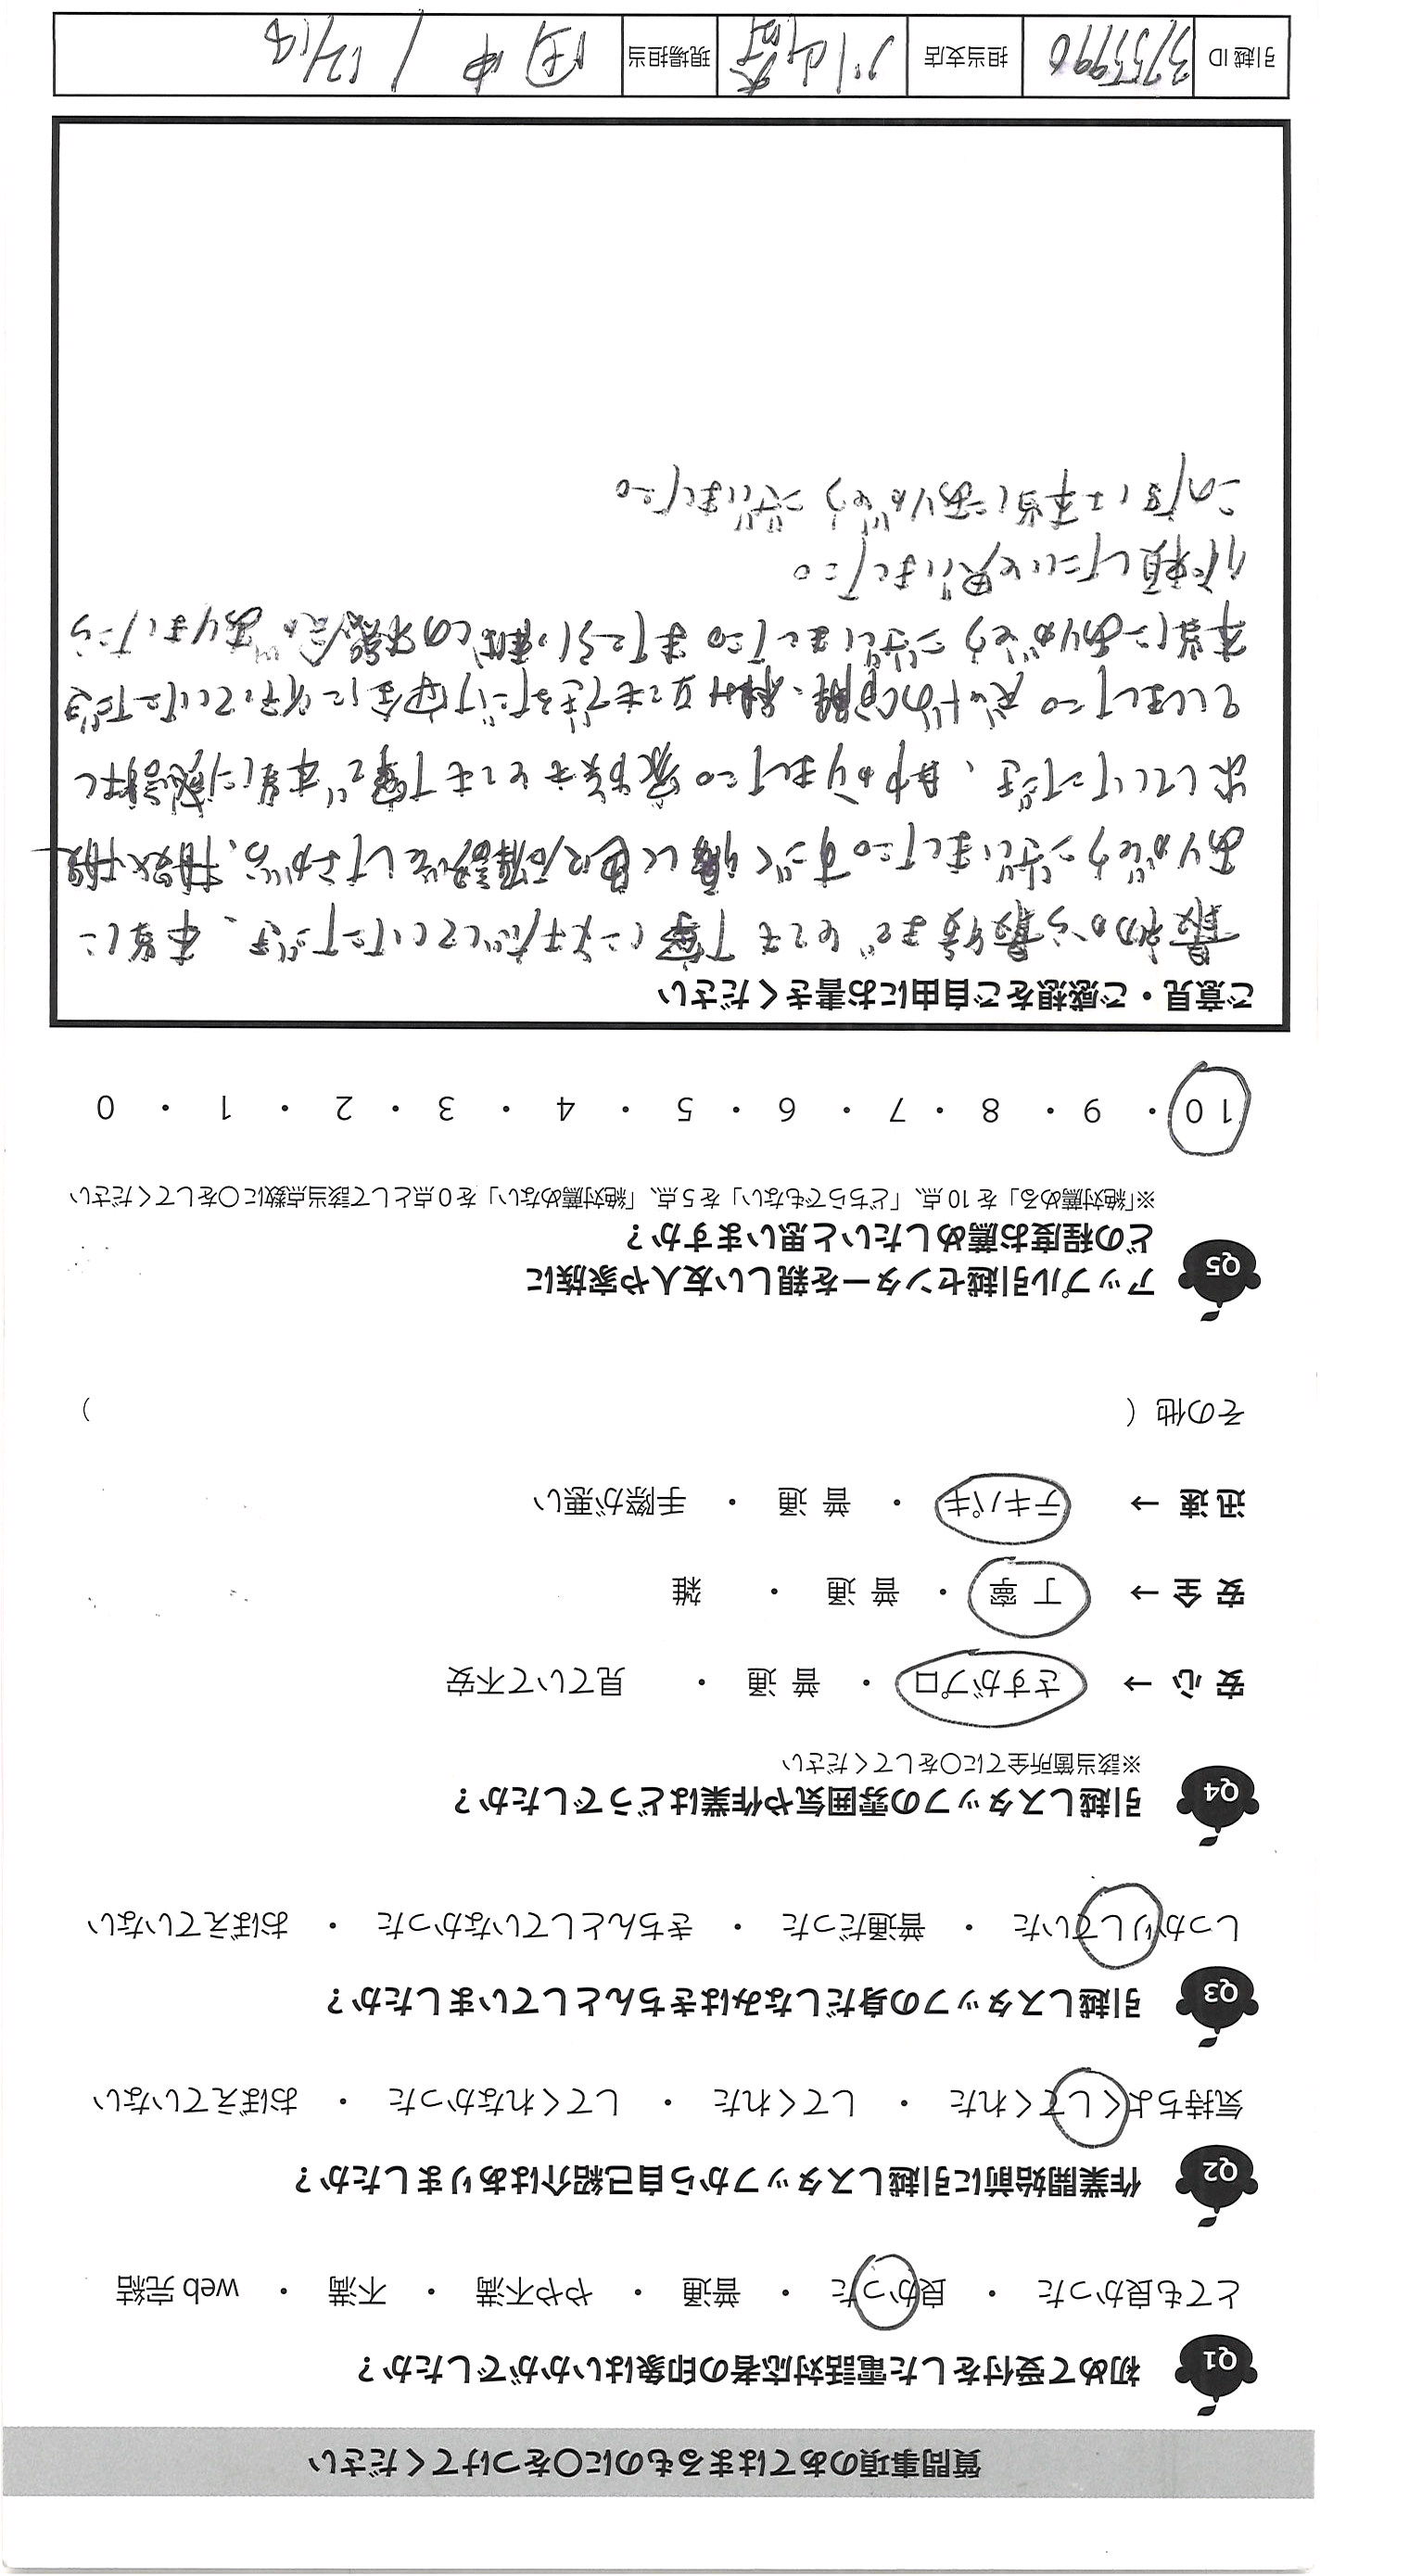 質問事項のあてはまるものに○をつけてください
Q1 初めて受付をした電話対応者の印象はいかがでしたか？
とても良かった ・ 良かった ・ 普通 ・ やや不満 ・ 不満 ・ web 完結
Q2 作業開始前に引越しスタッフから自己紹介はありましたか？
気持ちよくしてくれた ・ してくれた ・ してくれなかった ・ おぼえていない
Q3 引越しスタッフの身だしなみはきちんとしていましたか？
しっかりしていた ・ 普通だった ・ きちんとしていなかった ・ おぼえていない
Q4 引越しスタッフの雰囲気や作業はどうでしたか？
※該当箇所全てに○をしてください
安心 → さすがプロ ・ 普通 ・ 見ていて不安
安全 → 丁寧 ・ 普通 ・ 雑
迅速 → テキパキ ・ 普通 ・ 手際が悪い
その他（ ）
Q5 アップル引越センターを親しい友人や家族に
どの程度お薦めしたいと思いますか？
※「絶対薦める」を 10 点、「どちらでもない」を 5 点、「絶対薦めない」を 0 点として該当点数に○をしてください
10 ・ 9 ・ 8 ・ 7 ・ 6 ・ 5 ・ 4 ・ 3 ・ 2 ・ 1 ・ 0
ご意見・ご感想をご自由にお書きください
最初から最後までとても丁寧に対応していただき、本当に
ありがとうございました。すごく優しく色々確認をしながら、
していただき、助かりました。家具等もとても丁寧で本当に感謝
しました。ベッドの分解、もできるだけ安全に行っていただき
本当にありがとうございました。また引っ越しの機会がありましたら
依頼したいと思いました。
この度は本当にありがとうございました。
引越 ID 3755990 担当支店 現場担当 田中 /